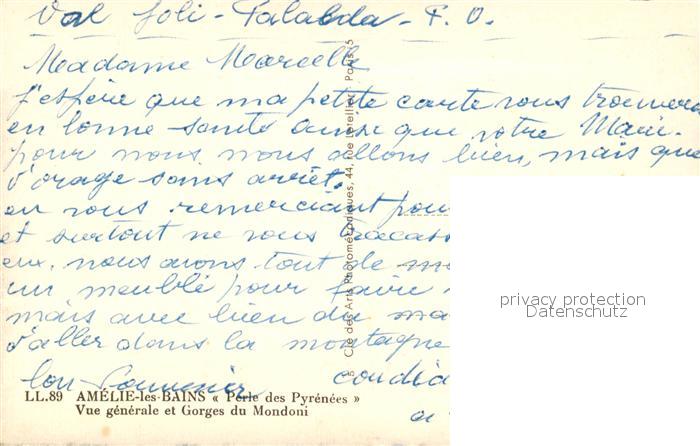 Val Joli - Palalda - P. O.
Madame Marcelle
j'espère que ma petite carte vous trouvera
en bonne santé ainsi que votre Mari.
pour nous nous allons bien, mais que
d'orage sans arrêt.
en vous remerciant pour
et surtout ne vous tracass
eux. nous avons tout de m
un meublé pour faire
mais avec bien du ma
d'aller dans la montagne
bon Souvenir cordia
a
LL.89 AMÉLIE-les-BAINS « Perle des Pyrénées »
Vue générale et Gorges du Mondoni
Cie des Arts Photomécaniques, 44, rue Letellier - Paris-15
privacy protection
Datenschutz